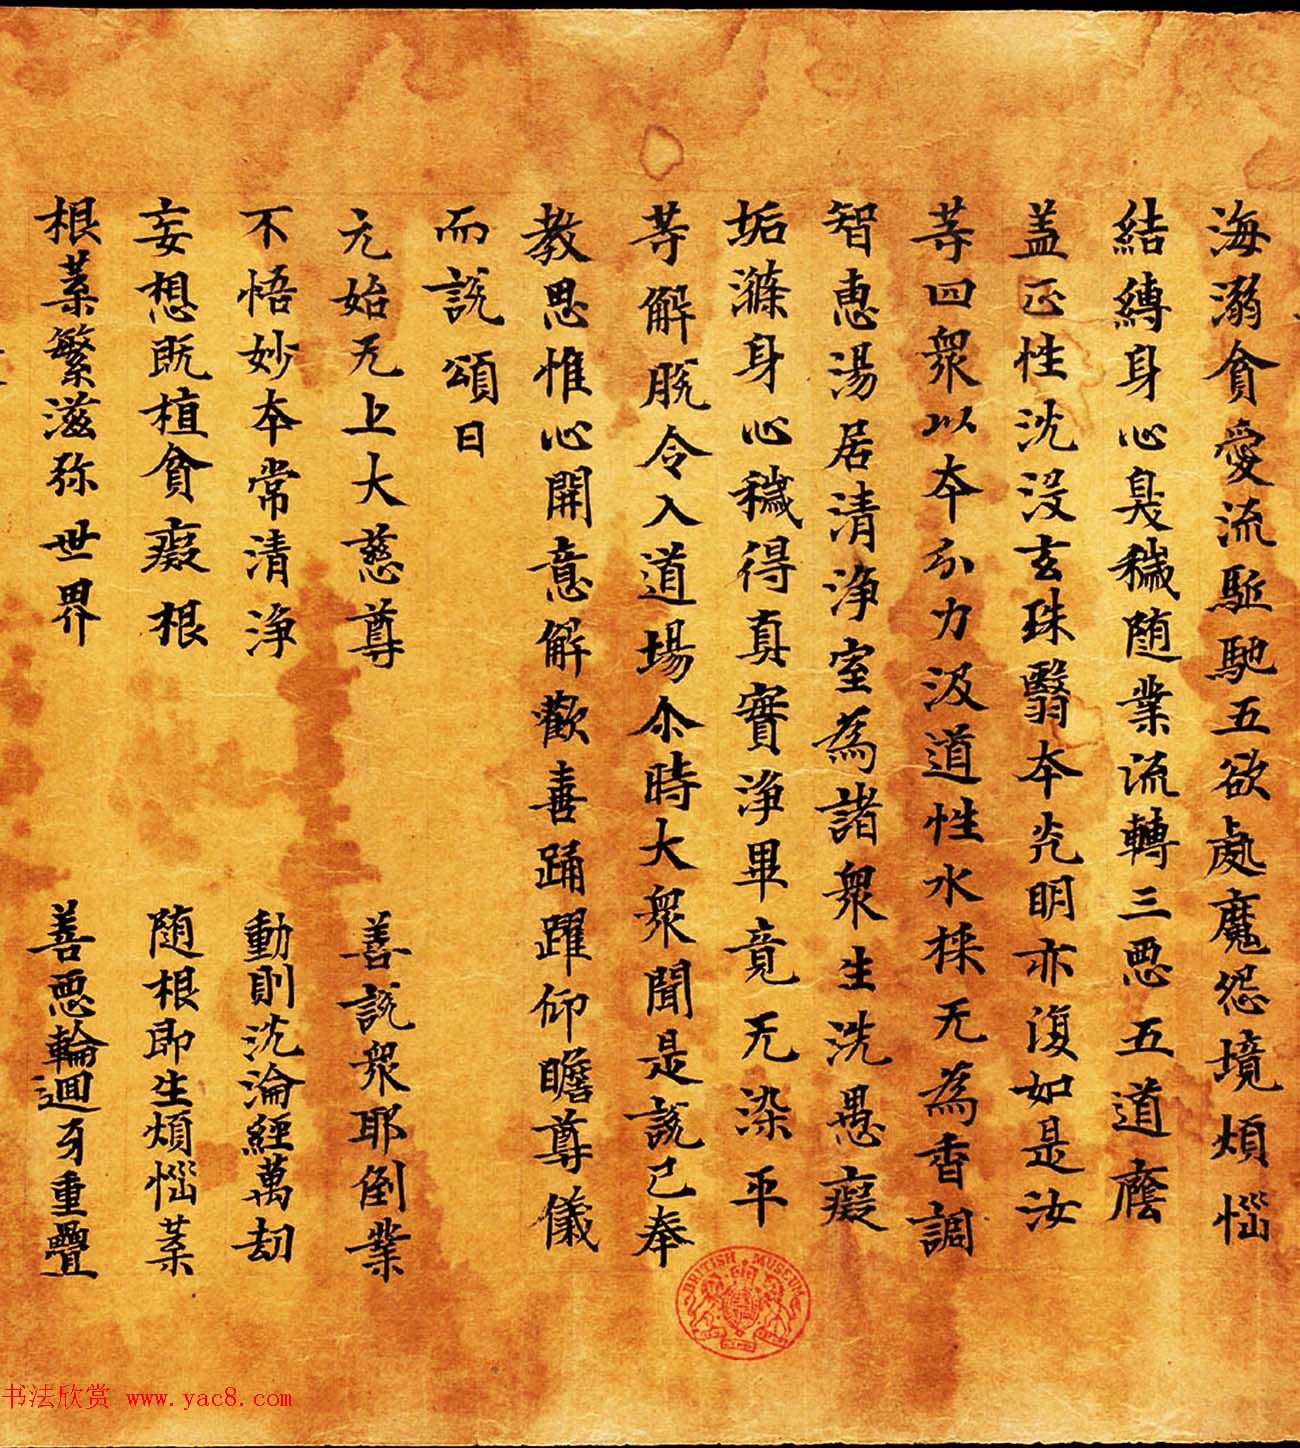 海溺貪愛流駈馳五欲處魔怨境煩惱
結縛身心臭穢随業流轉三惡五道癊
盖正性沈没玄珠翳夲光明亦復如是汝
䒭四衆以夲分力汲道性水採无為香調
智恵湯居清淨室為諸衆生洗愚癡
垢滌身心穢得真實淨畢竟无染平
䒭解脫令入道場尒時大衆聞是說已奉
教思惟心開意解歡喜踊躍仰瞻尊儀
而說頌曰
元始无上大慈尊 善說衆耶倒業
不悟妙夲常清淨 動則沈淪經萬劫
妄想既植貪癡根 随根即生煩惱葉
根葉繁滋弥世界 善惡輪迴牙重疊
BRITISH MUSEUM
书法欣赏 www.yac8.com